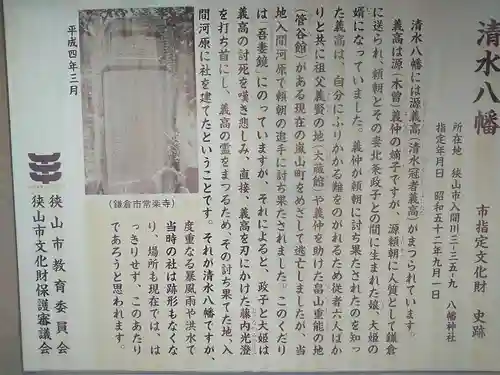 清水八幡
市指定文化財　史跡
所在地　狭山市入間川三-三五-九　八幡神社
指定年月日　昭和五十二年九月一日
清水八幡には源義高(清水冠者義高)がまつられています。
義高は源(木曽)義仲の嫡子ですが、源頼朝に人質として鎌倉
に送られ、頼朝とその妻北条政子との間に生まれた娘、大姫の
婿になっていました。義仲が頼朝に討ち果たされたのを知っ
た義高は、自分にふりかかる難をのがれるため従者六人ばか
りと共に祖父義賢の地(大蔵館)や義仲を助けた畠山重能の地
(菅谷館)がある現在の嵐山町をめざして逃亡しましたが、当
地入間河原で頼朝の追手に討ち果たされました。このくだり
は「吾妻鏡」にのっていますが、それによると、政子と大姫は
義高の討死を嘆き悲しみ、直接、義高を刃にかけた藤内光澄
を打ち首にし、義高の霊をまつるため、その討ち果てた地、入
間河原に社を建てたということです。それが清水八幡ですが、
当時の社は跡形もなくな
度重なる暴風雨や洪水で
り、場所も現在では、は
っきりせず、このあたり
であろうと思われます。
(鎌倉市常楽寺)
平成四年三月
狭山市教育委員会
狭山市文化財保護審議会